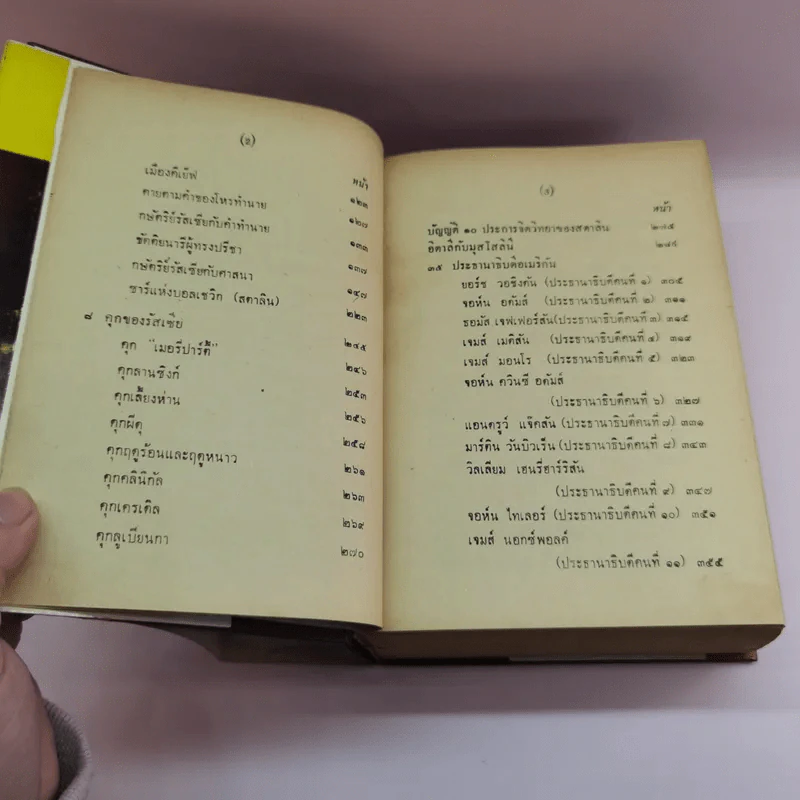 (ข)
หน้า
เมืองคีเอฟ ๑๒๓
ตายตามคำของโหรทำนาย ๑๒๗
กษัตริย์รัสเซียกับคำทำนาย ๑๓๓
ขัตติยนารีผู้ทรงปรีชา ๑๓๗
กษัตริย์รัสเซียกับศาสนา ๑๔๗
ซาร์แห่งบอลเชวิก (สตาลิน) ๒๒๓
๘ คุกของรัสเซีย ๒๔๕
คุก "เมอรี่ปาร์ตี้" ๒๔๖
คุกลานซิงก์ ๒๕๓
คุกเสี้ยงห่าน ๒๕๖
คุกผีดุ ๒๕๘
คุกฤดูร้อนและฤดูหนาว ๒๖๑
คุกคลินิกัล ๒๖๓
คุกเครเติล ๒๖๙
คุกลูเบียนกา ๒๗๐
(ค)
หน้า
บัญญัติ ๑๐ ประการจิตวิทยาของสตาลิน ๒๗๕
อิตาลีกับมุสโสลินี ๒๘๙
๓๕ ประธานาธิบดีอเมริกัน
ยอร์ช วอชิงตัน (ประธานาธิบดีคนที่ ๑) ๓๐๕
จอห์น อดัมส์ (ประธานาธิบดีคนที่ ๒) ๓๑๑
ธอมัส เจฟเฟอร์สัน(ประธานาธิบดีคนที่ ๓) ๓๑๕
เจมส์ เมดิสัน (ประธานาธิบดีคนที่ ๔) ๓๑๙
เจมส์ มอนโร (ประธานาธิบดีคนที่ ๕) ๓๒๓
จอห์น ควินซี อดัมส์
(ประธานาธิบดีคนที่ ๖) ๓๒๗
แอนดรูว์ แจ๊คสัน (ประธานาธิบดีคนที่ ๗) ๓๓๑
มาร์ติน วันบิวเร็น (ประธานาธิบดีคนที่ ๘) ๓๔๓
วิลเลียม เฮนรี่ฮาร์ริสัน
(ประธานาธิบดีคนที่ ๙) ๓๔๗
จอห์น ไทเลอร์ (ประธานาธิบดีคนที่ ๑๐) ๓๕๑
เจมส์ นอกซ์พอลค์
(ประธานาธิบดีคนที่ ๑๑) ๓๕๕